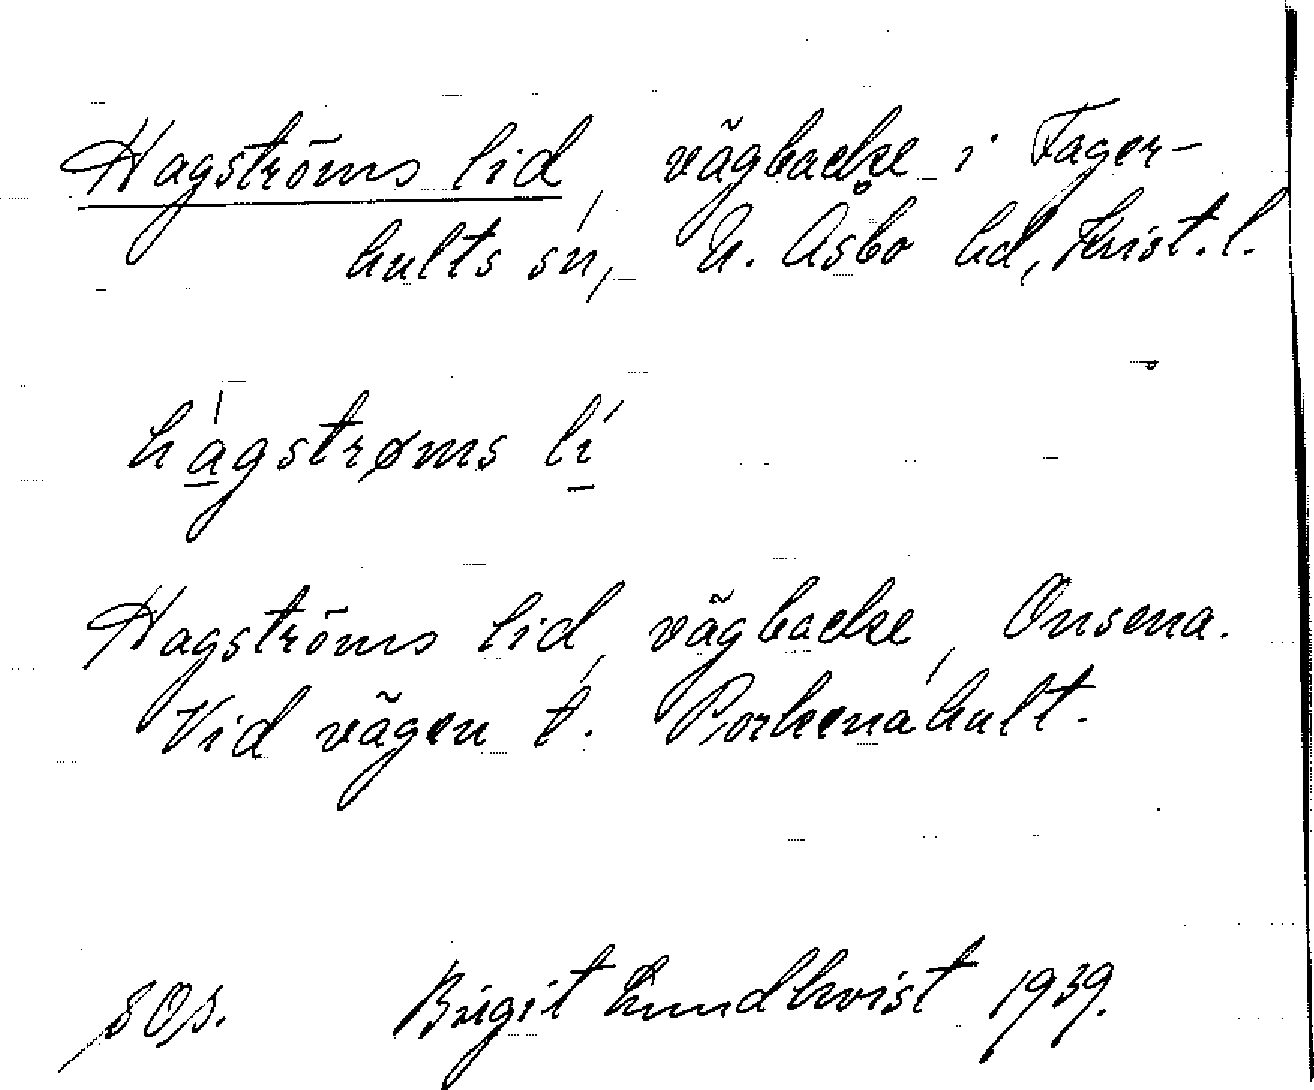 Hagströms lid, vägbacke i Fager-
hults sn, N. Åsbo hd, Krist. l.
hagstrøms li
Hagströms lid, vägbacke, Onsena.
Vid vägen t. Porkenahult.
SOS. Birgit Lundkvist 1939.